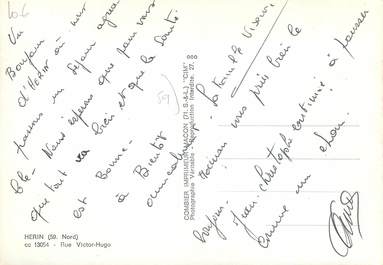 Un
Bonjour
d'Hérin où nous
passons un séjour agréa
ble. Nous espérons que pour vous
que tout va bien et que la santé
est bonne.
à Bientôt
amicalement. La famille
59
Bonjour Maman mes
Jean-Christophe continue à pousser
comme un chou.
000
COMBIER IMPRIMEUR MACON (71. S.-&-L.) "CIM"
Photographie Véritable - Reproduction Interdite. 27.
HERIN (59. Nord)
cc 13054 - Rue Victor-Hugo.